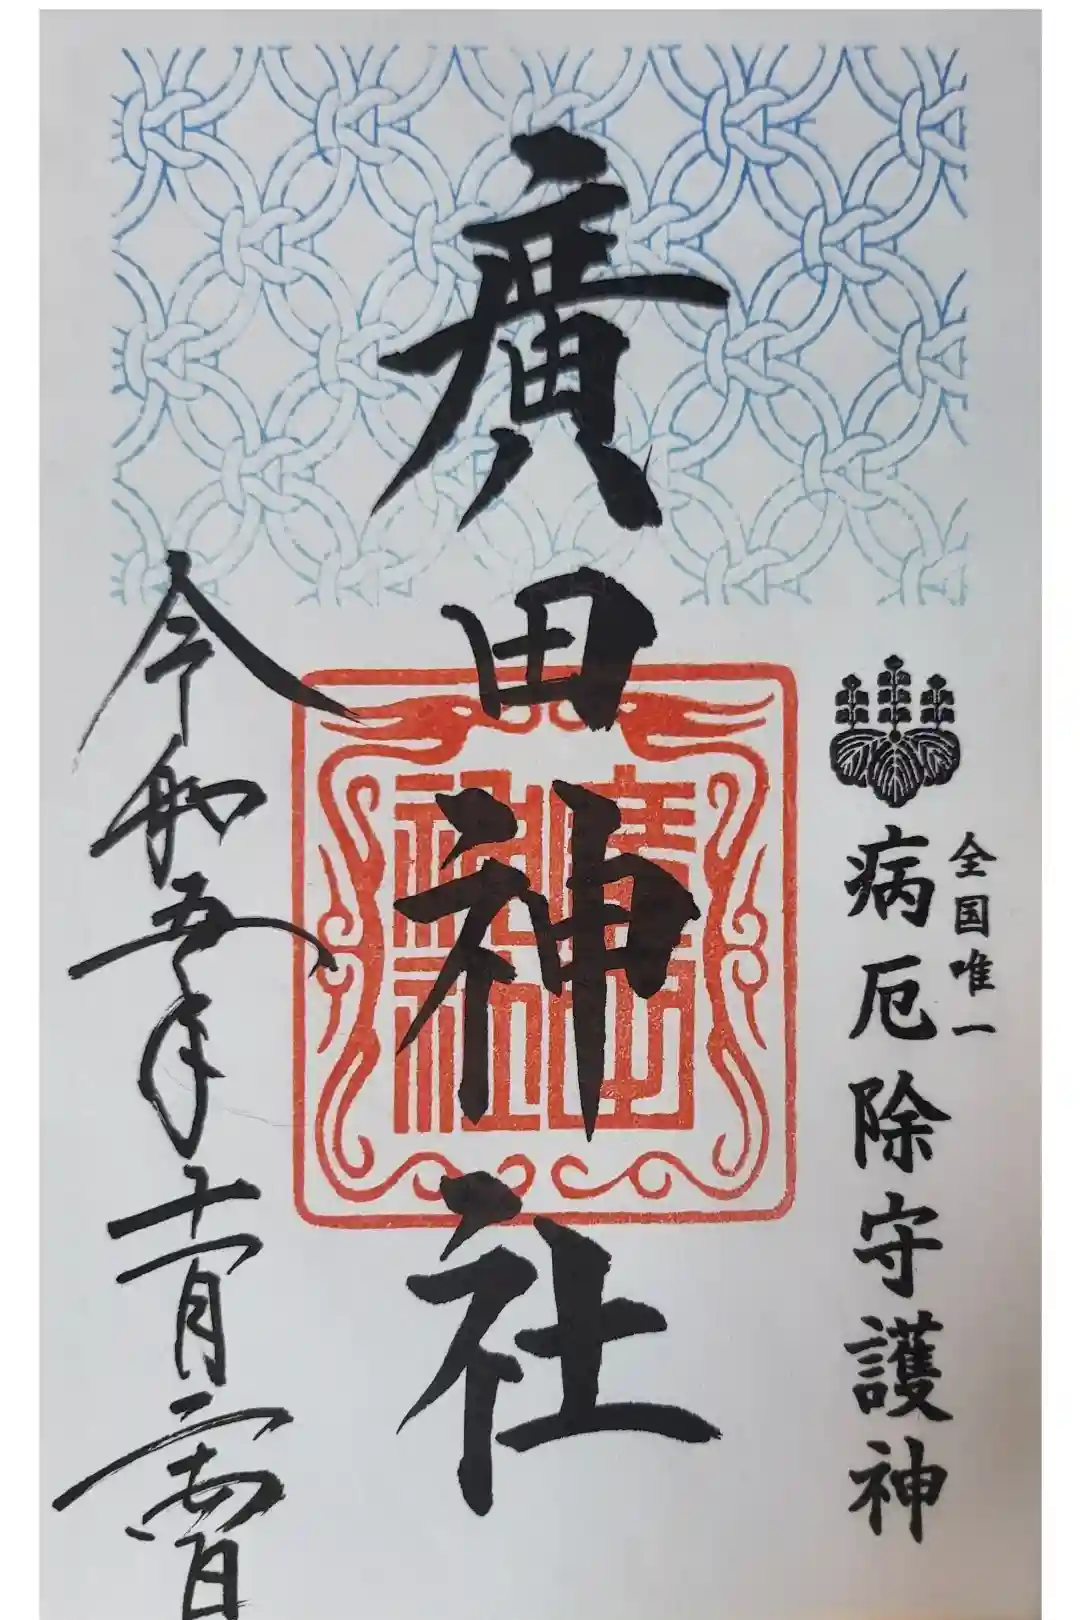 全国唯一
病厄除守護神
廣田神社
廣田
神社
令和五年十一月二日